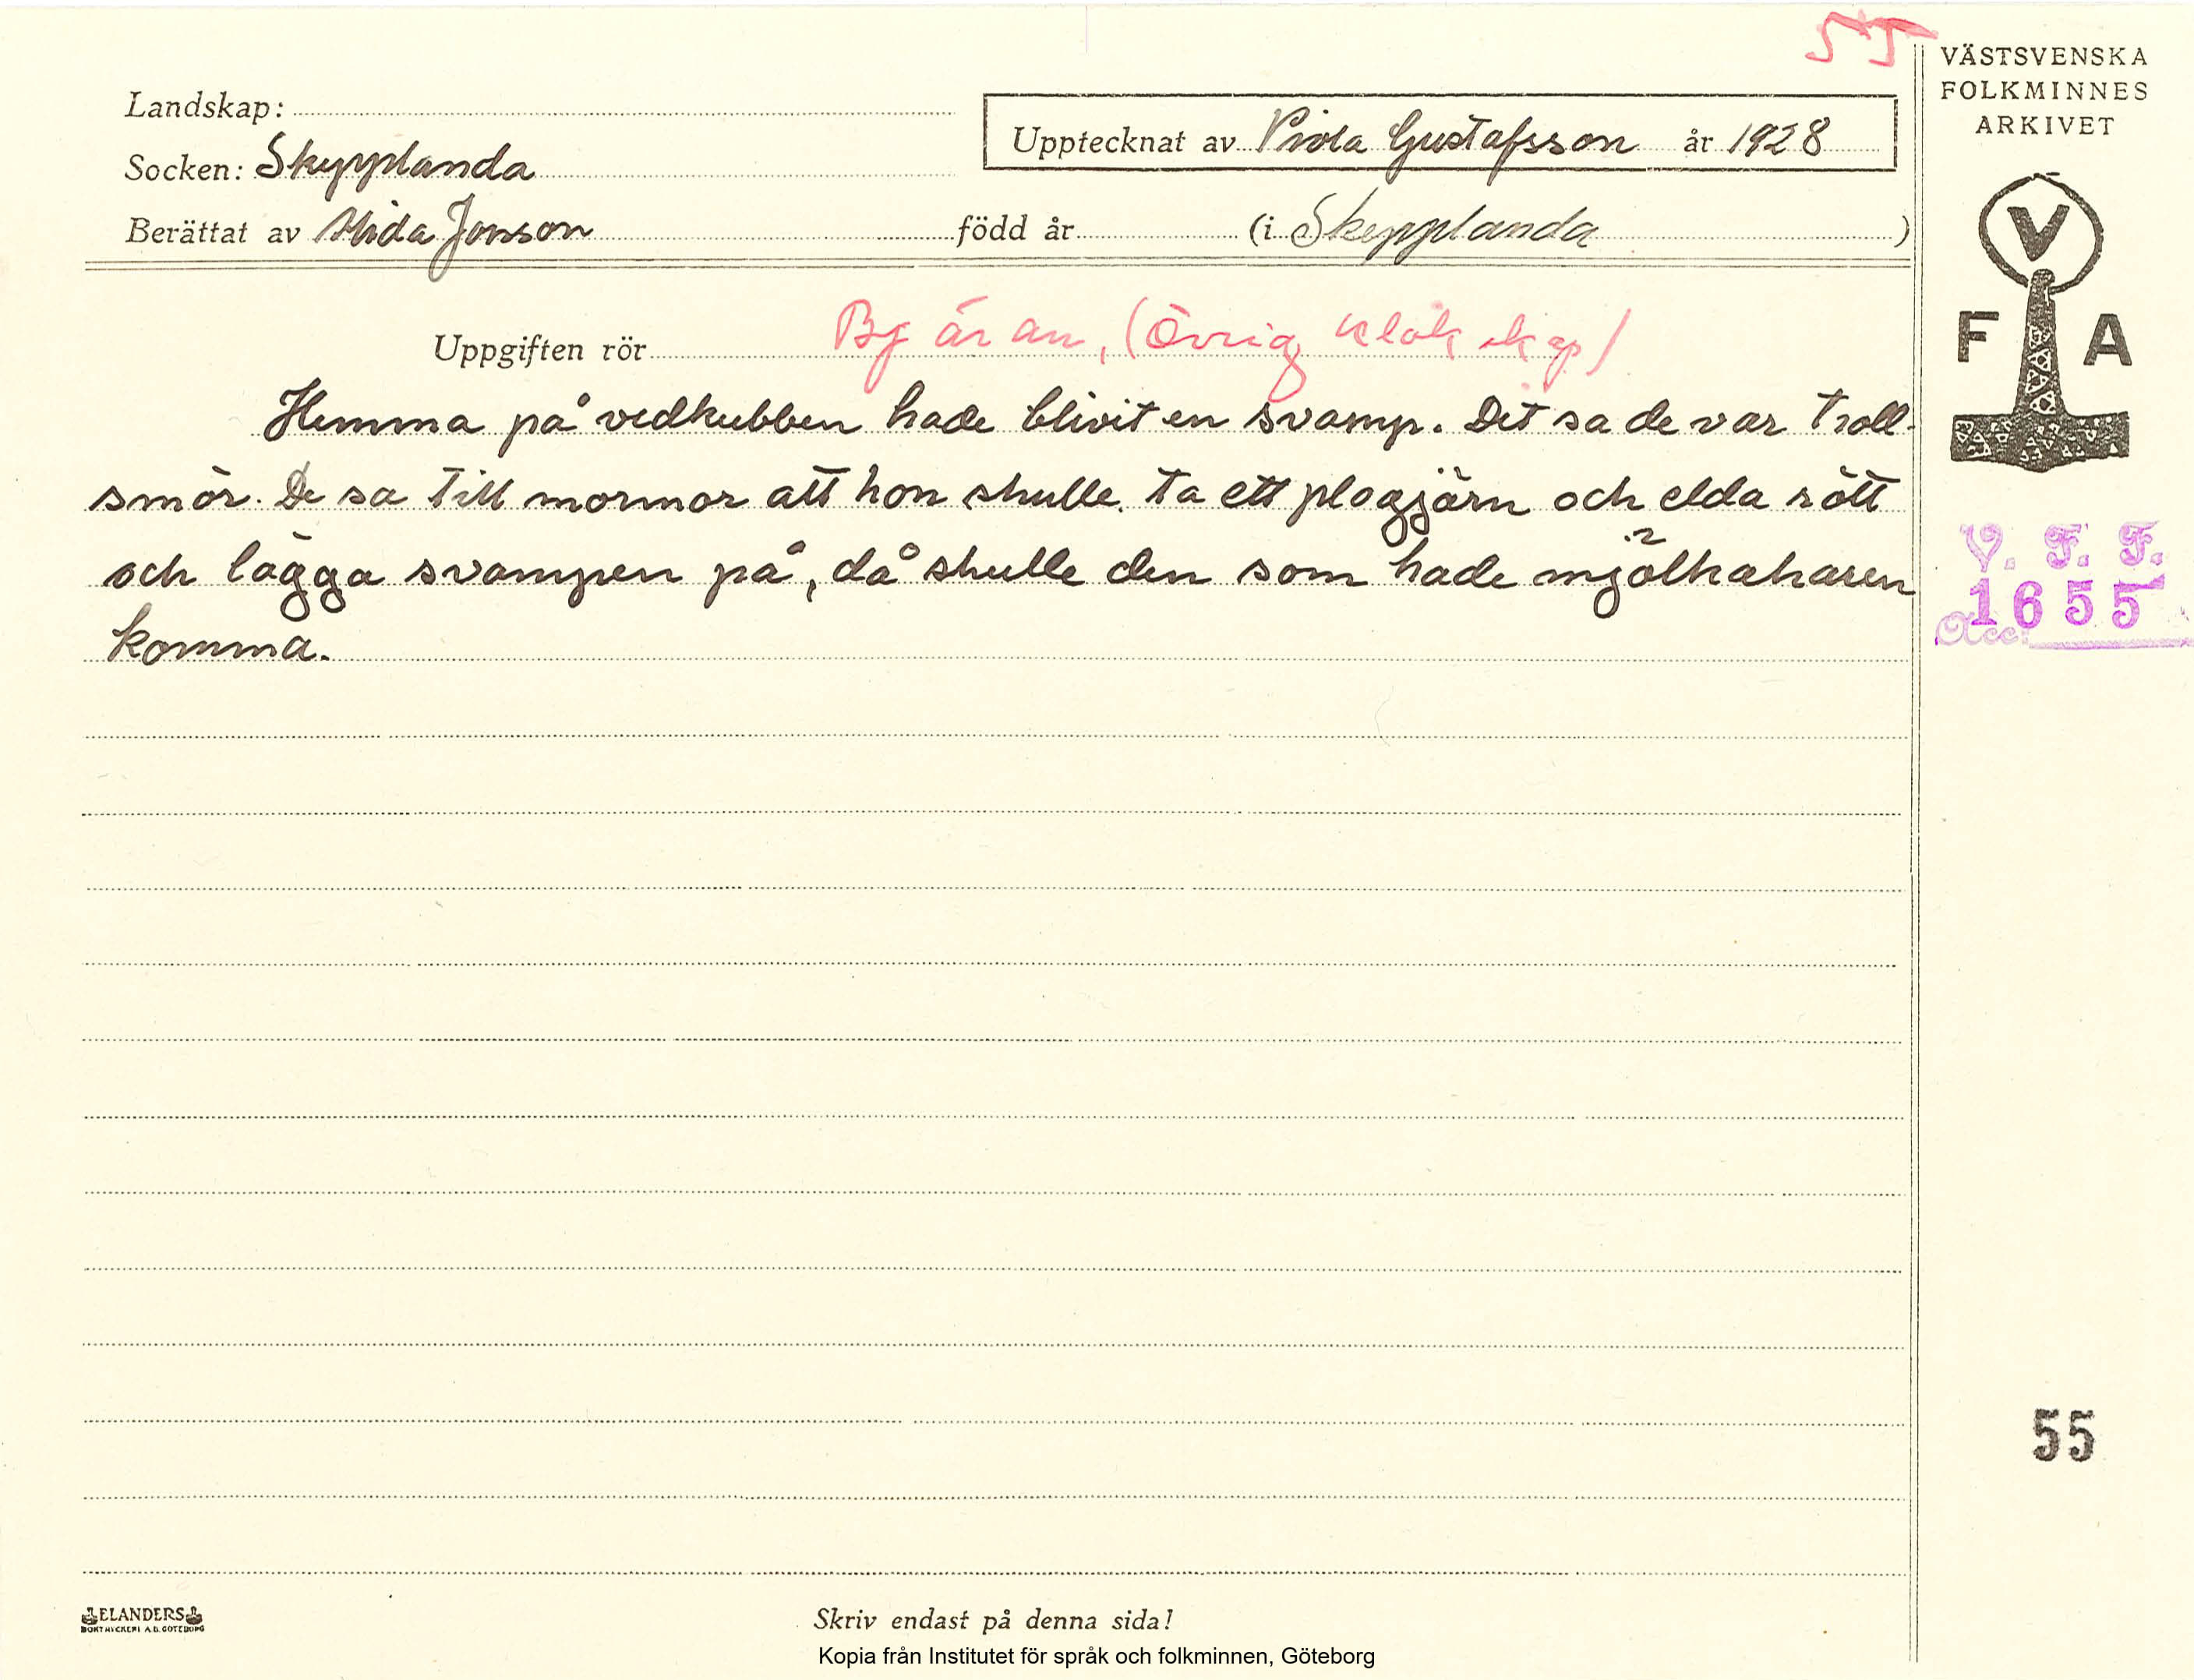 VÄSTSVENSKA
FOLKMINNES
ARKIVET
Landskap:
Upptecknat av Viola Gustafsson år 1928
Socken: Skepplanda
Berättat av Alida Jonson född år (i Skepplanda)
V
F A
Uppgiften rör Bjäran, (Övrig klokskap)
Hemma på vedkubben hade blivit en svamp. Det sa de var troll-
smör. De sa till mormor att hon skulle ta ett plogjärn och elda rött
och lägga svampen på, då skulle den som hade mjölkaharen
komma.
V. F. F.
1655
Acc:
55
ELANDERS
BOKTRYCKERI A.B. GÖTEBORG
Skriv endast på denna sida!
Kopia från Institutet för språk och folkminnen, Göteborg